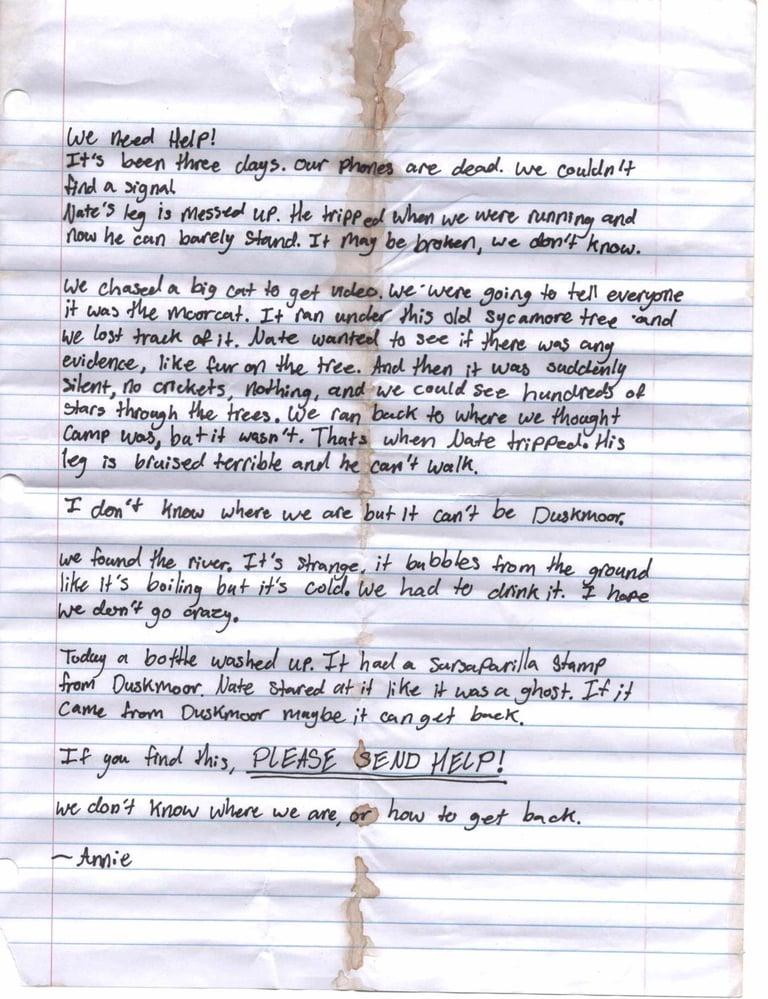 We need Help!
It's been three days. Our phones are dead. We couldn't
find a signal
Nate's leg is messed up. He tripped when we were running and
now he can barely stand. It may be broken, we don't know.
We chased a big cat to get video. We were going to tell everyone
it was the moorcat. It ran under this old sycamore tree and
we lost track of it. Nate wanted to see if there was any
evidence, like fur on the tree. And then it was suddenly
silent, no crickets, nothing, and we could see hundreds of
stars through the trees. We ran back to where we thought
camp was, but it wasn't. Thats when Nate tripped. His
leg is bruised terrible and he can't walk.
I don't know where we are but it can't be Duskmoor.
we found the river. It's strange, it bubbles from the ground
like it's boiling but it's cold. We had to drink it. I hope
we don't go crazy.
Today a bottle washed up. It had a Sarsaparilla Stamp
from Duskmoor. Nate stared at it like it was a ghost. If it
came from Duskmoor maybe it can get back.
If you find this, PLEASE SEND HELP!
we don't know where we are, or how to get back.
~Annie